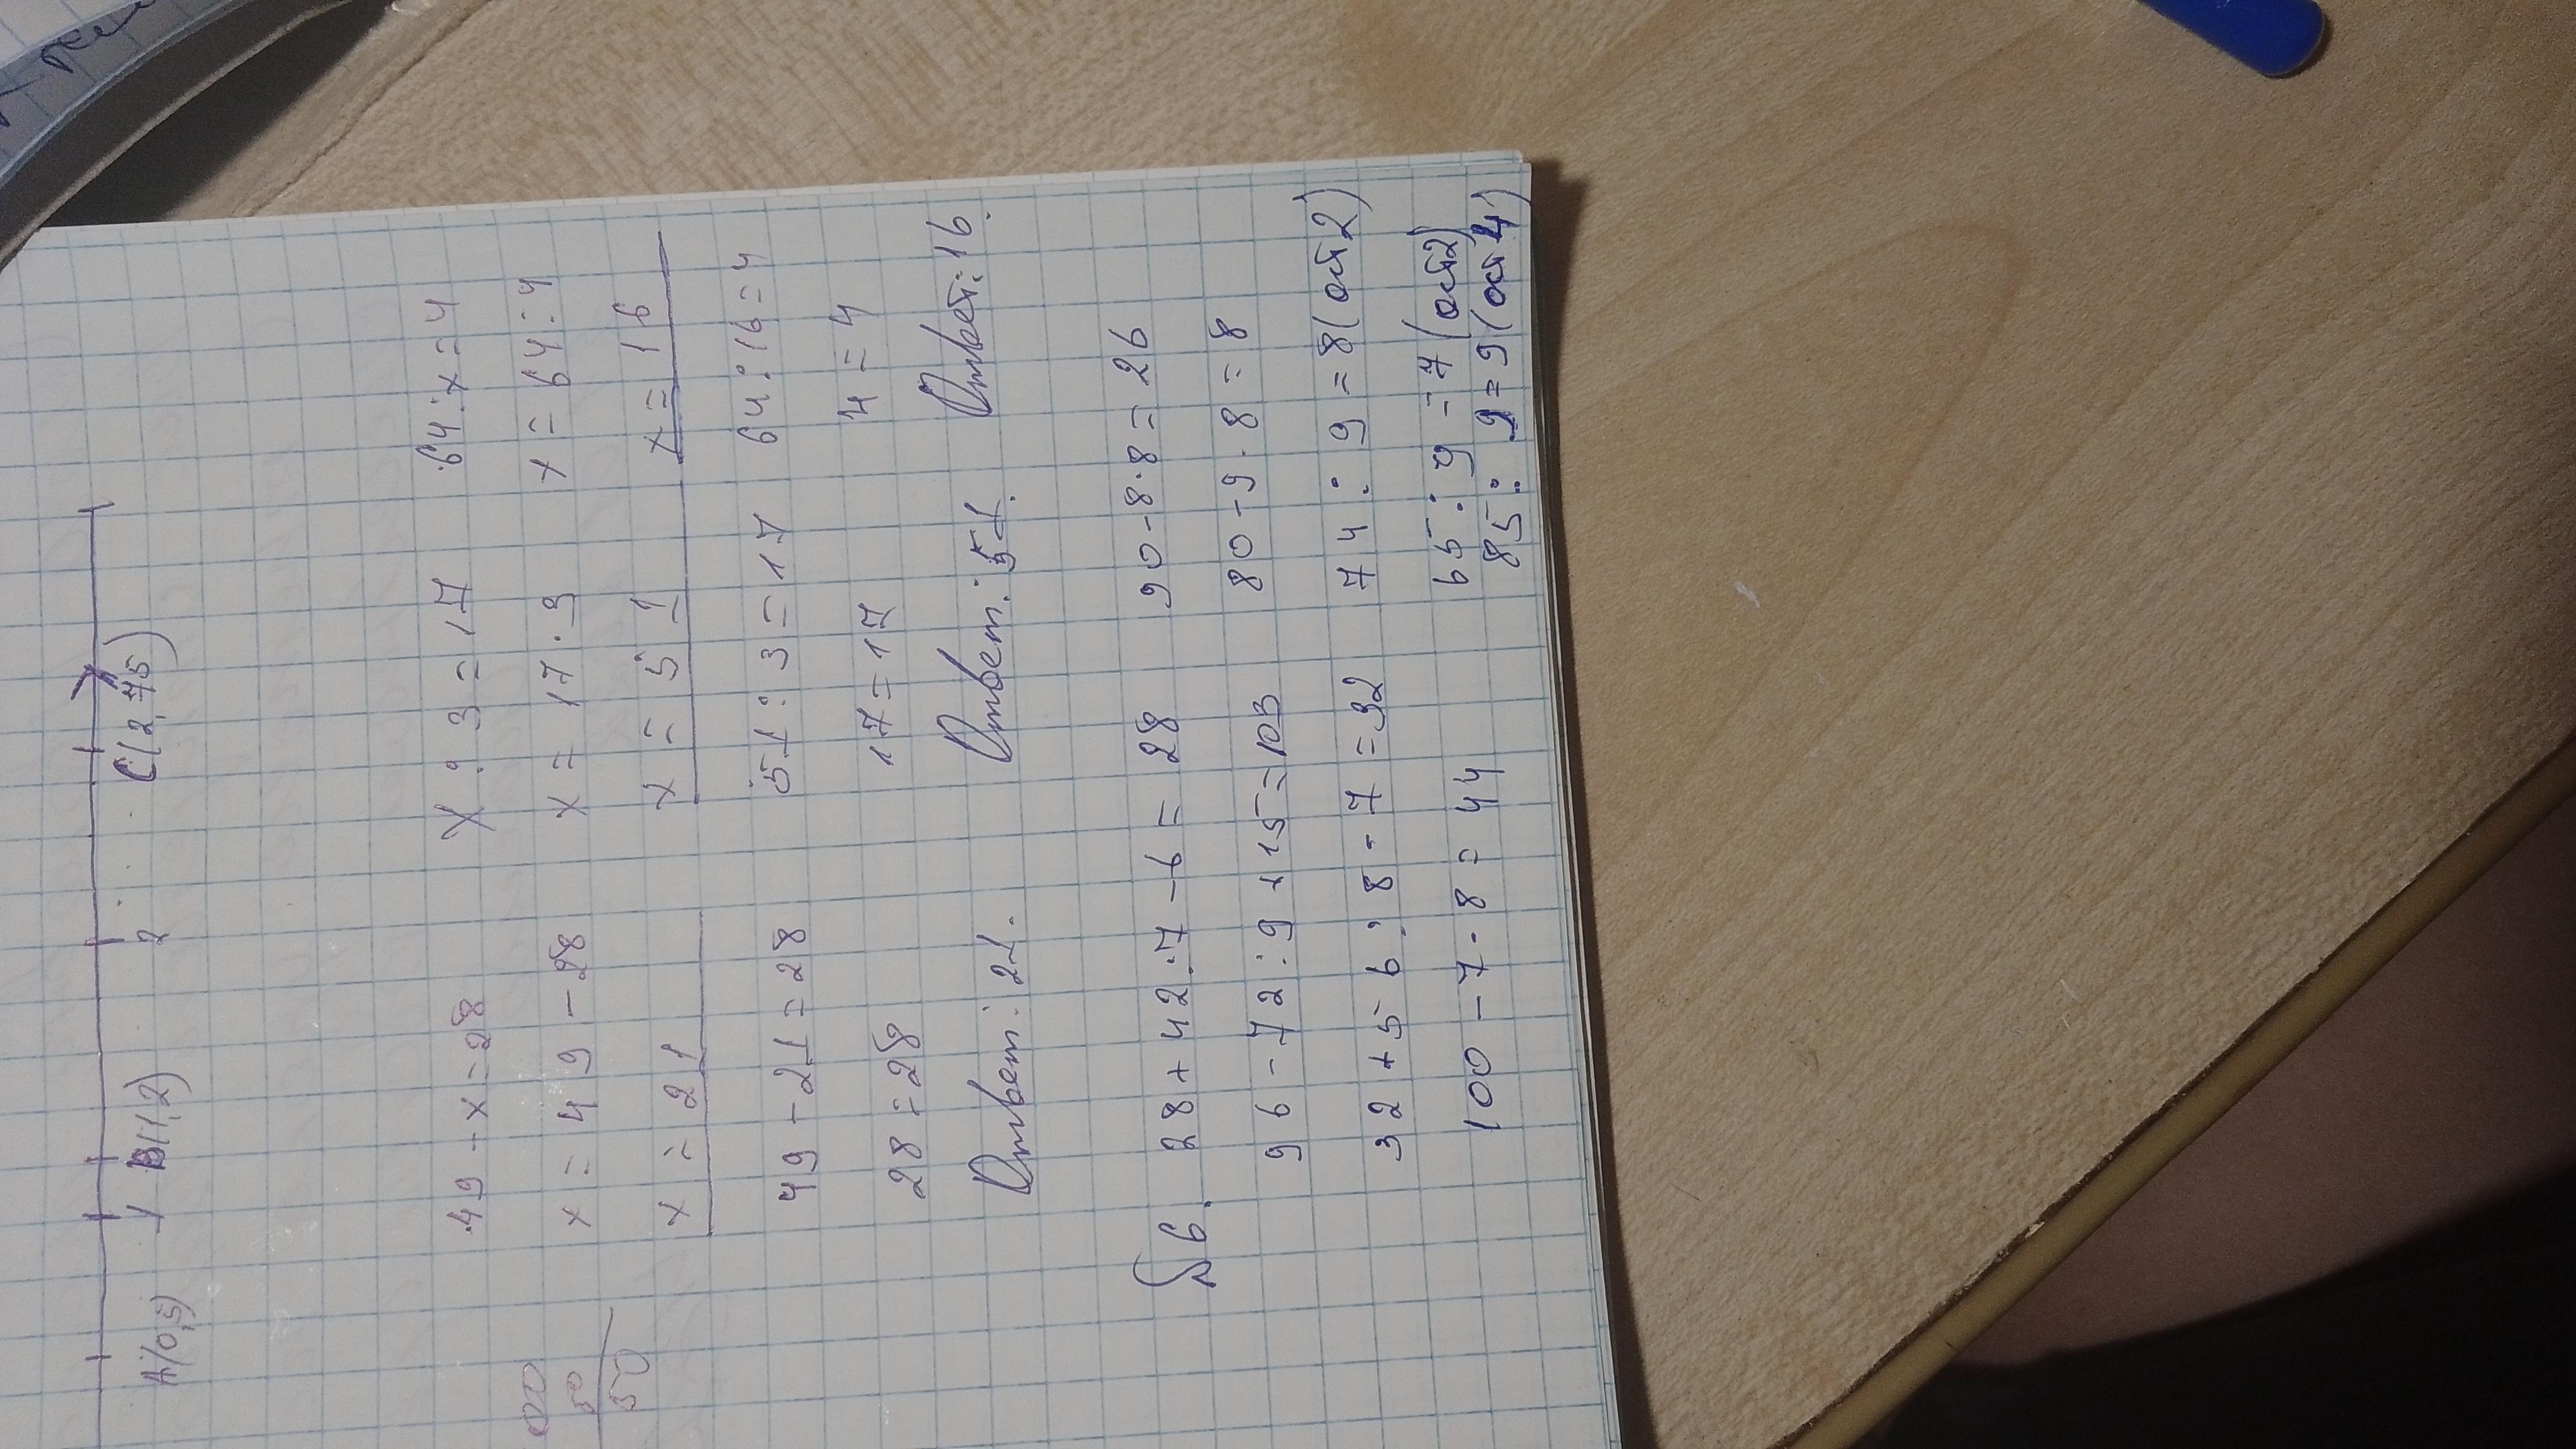 A(0,5) 1 B(1,2) 2 C(2,75)
49 - x = 28 x : 3 = 17 64 : x = 4
x = 49 - 28 x = 17 · 3 x = 64 : 4
x = 21 x = 51 x = 16
49 - 21 = 28 51 : 3 = 17 64 : 16 = 4
28 = 28 17 = 17 4 = 4
Ответ: 21. Ответ: 51. Ответ: 16.
50
50
№6. 28 + 42 : 7 - 6 = 28 90 - 8 · 8 = 26
96 - 72 : 9 + 15 = 103 80 - 9 · 8 = 8
32 + 56 : 8 - 7 = 32 74 : 9 = 8 (ост 2)
100 - 7 · 8 = 44 65 : 9 = 7 (ост 2)
85 : 9 = 9 (ост 4)